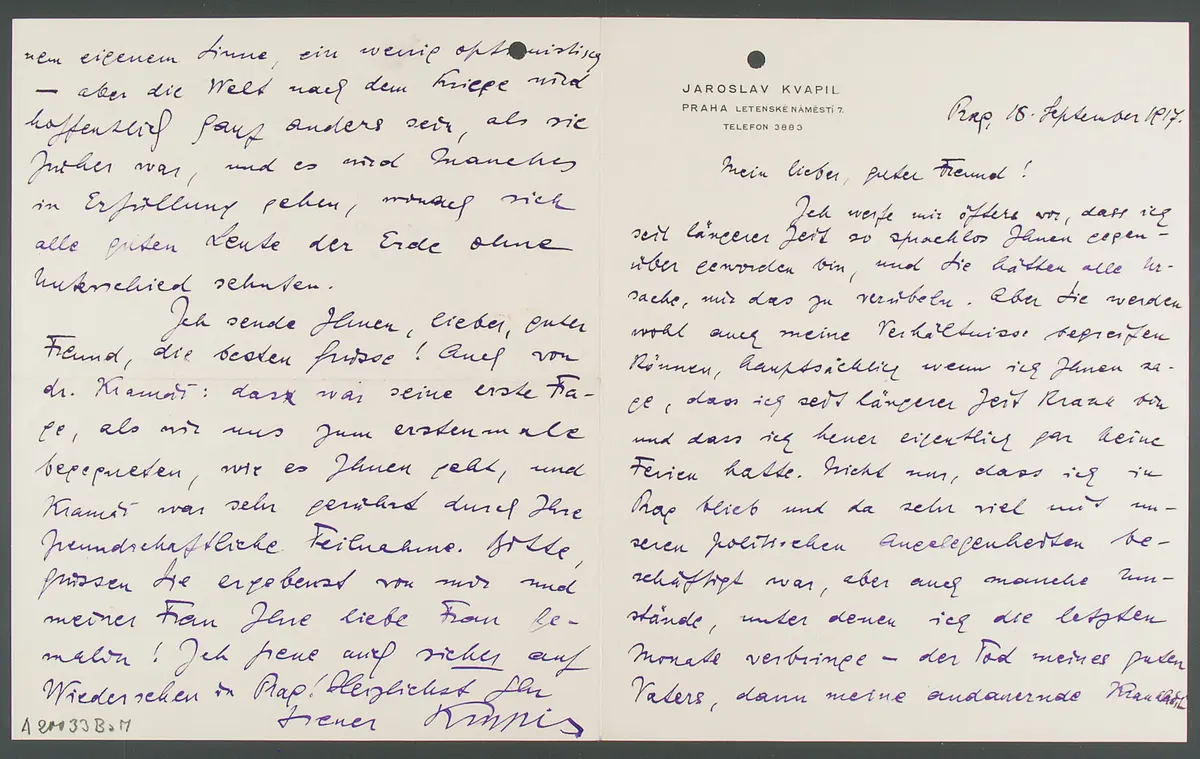 nem eigenem Sinne, ein wenig optimistisch
— aber die Welt nach dem Kriege wird
hoffentlich ganz anders sein, als sie
früher war, und es wird Manches
in Erfüllung gehen, wonach sich
alle guten Leute der Erde ohne
Unterschied sehnten.
Ich sende Ihnen, lieber, guter
Freund, die besten Grüsse! Auch von
dr. Kramář: das war seine erste Fra-
ge, als wir uns zum erstenmale
begegneten, wie es Ihnen geht, und
Kramář war sehr gerührt durch Ihre
freundschaftliche Teilnahme. Bitte,
grüssen Sie ergebenst von mir und
meiner Frau Ihre liebe Frau Ge-
mahlin! Ich freue mich sicher auf
Wiedersehen in Prag! Herzlichst Ihr
treuer Kvapil
A 20033 BaM
JAROSLAV KVAPIL
PRAHA LETENSKÉ NÁMĚSTÍ 7.
TELEFON 3883
Prag, 16. September 1917.
Mein lieber, guter Freund!
Ich werfe mir öfters vor, dass ich
seit längerer Zeit so sprachlos Ihnen gegen-
über geworden bin, und Sie hätten alle Ur-
sache, mir das zu verübeln. Aber Sie werden
wohl auch meine Verhältnisse begreifen
können, hauptsächlich wenn ich Ihnen sa-
ge, dass ich seit längerer Zeit krank bin
und dass ich heuer eigentlich gar keine
Ferien hatte. Nicht nur, dass ich in
Prag blieb und da sehr viel mit un-
seren politischen Angelegenheiten be-
schäftigt war, aber auch manche Um-
stände, unter denen ich die letzten
Monate verbringe — der Tod meines guten
Vaters, dann meine andauernde Krankheit